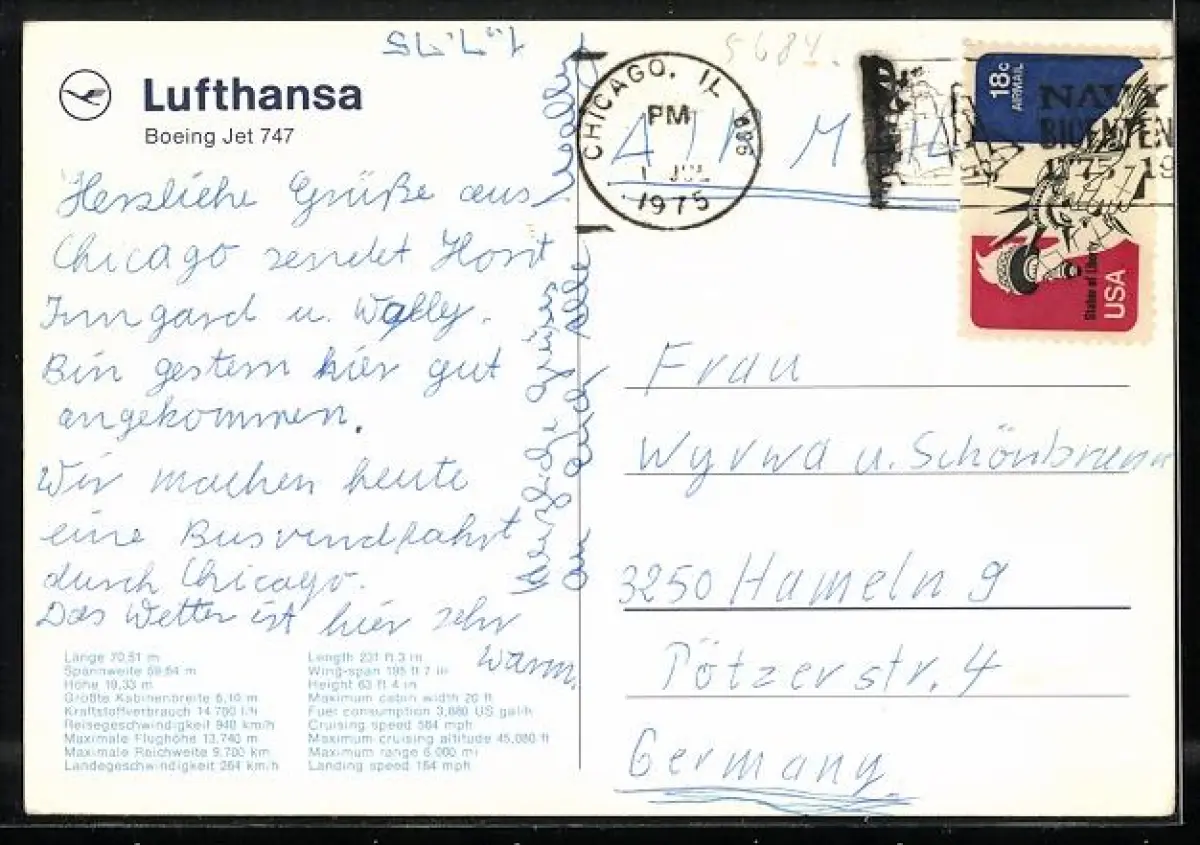 1.7.75
Lufthansa
Boeing Jet 747
Herzliche Grüße aus
Chicago sendet Horst
Irmgard u. Wally.
Bin gestern hier gut
angekommen.
Wir machen heute
eine Busrundfahrt
durch Chicago.
Das Wetter ist hier sehr
warm.
Herzliche Grüße
an auch alle
Wally
Länge 70,51 m
Spannweite 59,64 m
Höhe 19,33 m
Größte Kabinenbreite 6,10 m
Kraftstoffverbrauch 14 700 l/h
Reisegeschwindigkeit 940 km/h
Maximale Flughöhe 13.740 m
Maximale Reichweite 9.700 km
Landegeschwindigkeit 264 km/h
Length 231 ft 3 in
Wing-span 195 ft 7 in
Height 63 ft 4 in
Maximum cabin width 20 ft
Fuel consumption 3,880 US gal/h
Cruising speed 584 mph
Maximum cruising altitude 45,080 ft
Maximum range 6 000 mi
Landing speed 164 mph
5684.
CHICAGO, IL 606
PM
1 JUL
1975
AIR MAIL
NAVY
BICENTEN
1775-19
18c
AIRMAIL
Statue of Liberty
USA
Frau
Wyrwa u. Schönbrunn
3250 Hameln 9
Pötzerstr. 4
Germany